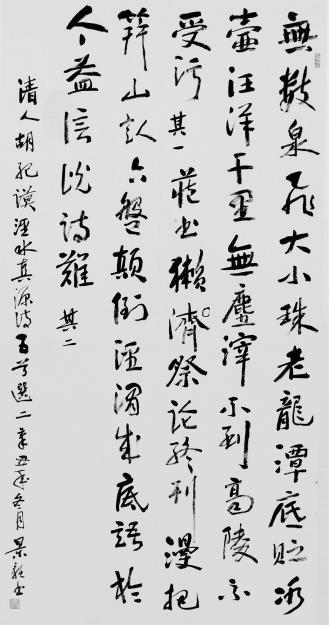 無數泉飛大小珠老龍潭底貯冰
壺汪洋千里無塵滓不到高陵不
受污 其一 書獺濟祭論終刊漫把
笄山認六盤顛倒涇濁成底語於
人益信說詩難 其二
清人胡紀謨涇水真源詩百首選二辛丑年冬月景書